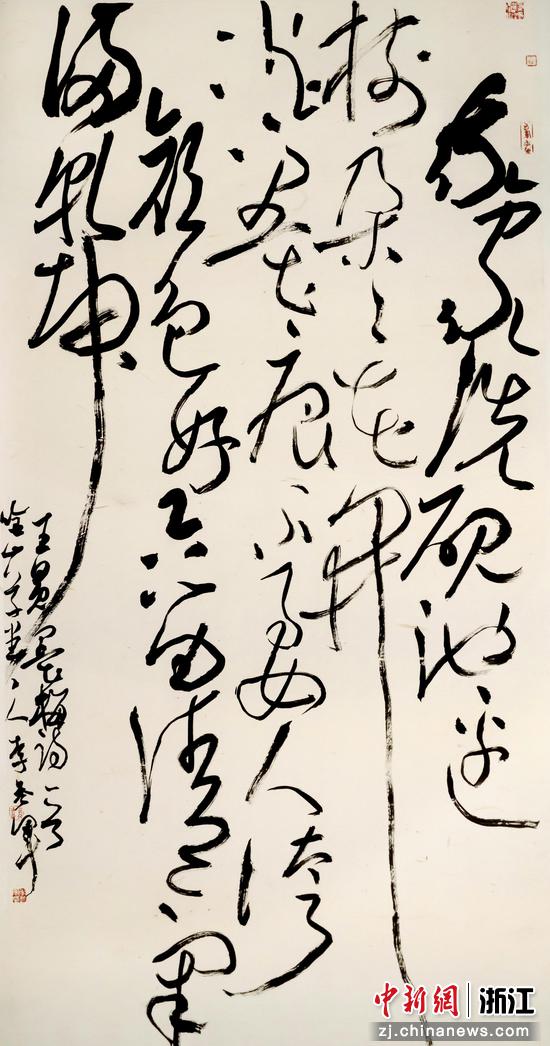 我家洗砚池边
树朵々花开
淡墨痕不要人夸
颜色好只留清气
满乾坤
王冕墨梅诗一首
中新網 浙江
zj.chinanews.com